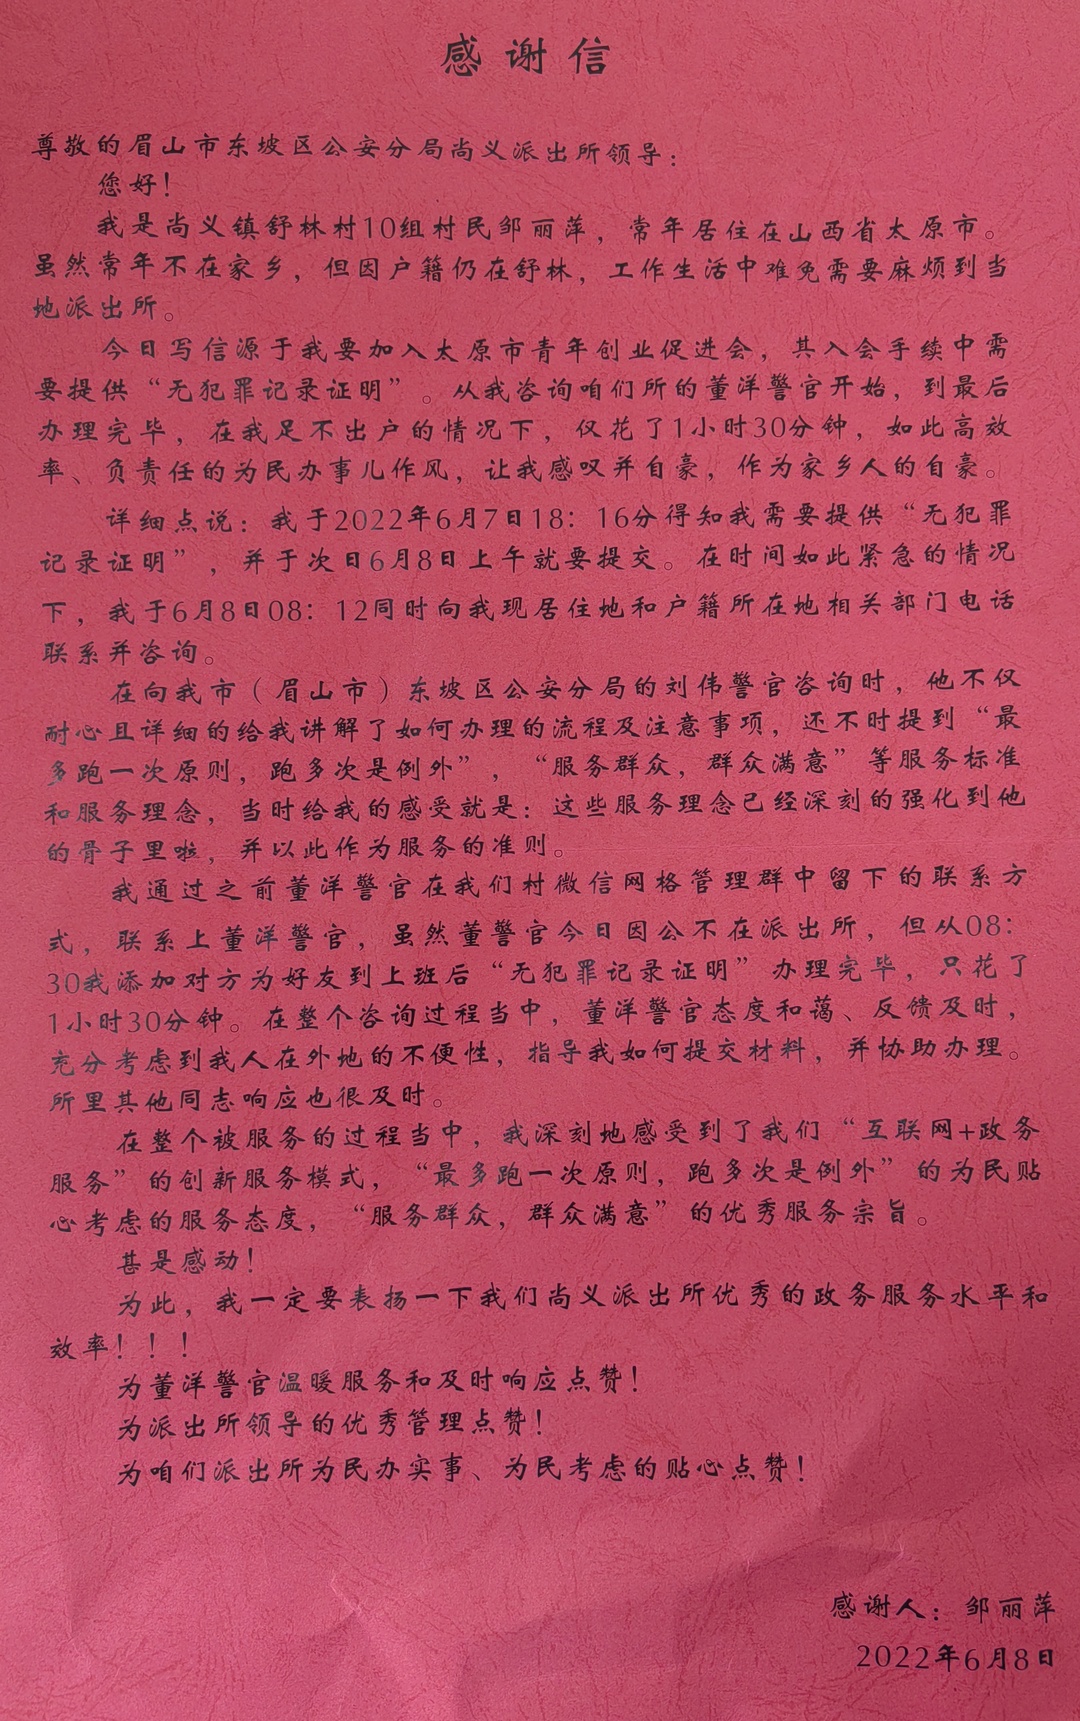 感谢信
尊敬的眉山市东坡区公安分局尚义派出所领导：
您好！
我是尚义镇舒林村10组村民邹丽萍，常年居住在山西省太原市。
虽然常年不在家乡，但因户籍仍在舒林，工作生活中难免需要麻烦到当
地派出所。
今日写信源于我要加入太原市青年创业促进会，其入会手续中需
要提供“无犯罪记录证明”。从我咨询咱们所的董洋警官开始，到最后
办理完毕，在我足不出户的情况下，仅花了1小时30分钟，如此高效
率、负责任的为民办事儿作风，让我感叹并自豪，作为家乡人的自豪。
详细点说：我于2022年6月7日18：16分得知我需要提供“无犯罪
记录证明”，并于次日6月8日上午就要提交。在时间如此紧急的情况
下，我于6月8日08：12同时向我现居住地和户籍所在地相关部门电话
联系并咨询。
在向我市（眉山市）东坡区公安分局的刘伟警官咨询时，他不仅
耐心且详细的给我讲解了如何办理的流程及注意事项，还不时提到“最
多跑一次原则，跑多次是例外”，“服务群众，群众满意”等服务标准
和服务理念，当时给我的感受就是：这些服务理念已经深刻的强化到他
的骨子里啦，并以此作为服务的准则。
我通过之前董洋警官在我们村微信网格管理群中留下的联系方
式，联系上董洋警官，虽然董警官今日因公不在派出所，但从08：
30我添加对方为好友到上班后“无犯罪记录证明”办理完毕，只花了
1小时30分钟。在整个咨询过程当中，董洋警官态度和蔼、反馈及时，
充分考虑到我人在外地的不便性，指导我如何提交材料，并协助办理。
所里其他同志响应也很及时。
在整个被服务的过程当中，我深刻地感受到了我们“互联网+政务
服务”的创新服务模式，“最多跑一次原则，跑多次是例外”的为民贴
心考虑的服务态度，“服务群众，群众满意”的优秀服务宗旨。
甚是感动！
为此，我一定要表扬一下我们尚义派出所优秀的政务服务水平和
效率！！！
为董洋警官温暖服务和及时响应点赞！
为派出所领导的优秀管理点赞！
为咱们派出所为民办实事、为民考虑的贴心点赞！
感谢人：邹丽萍
2022年6月8日